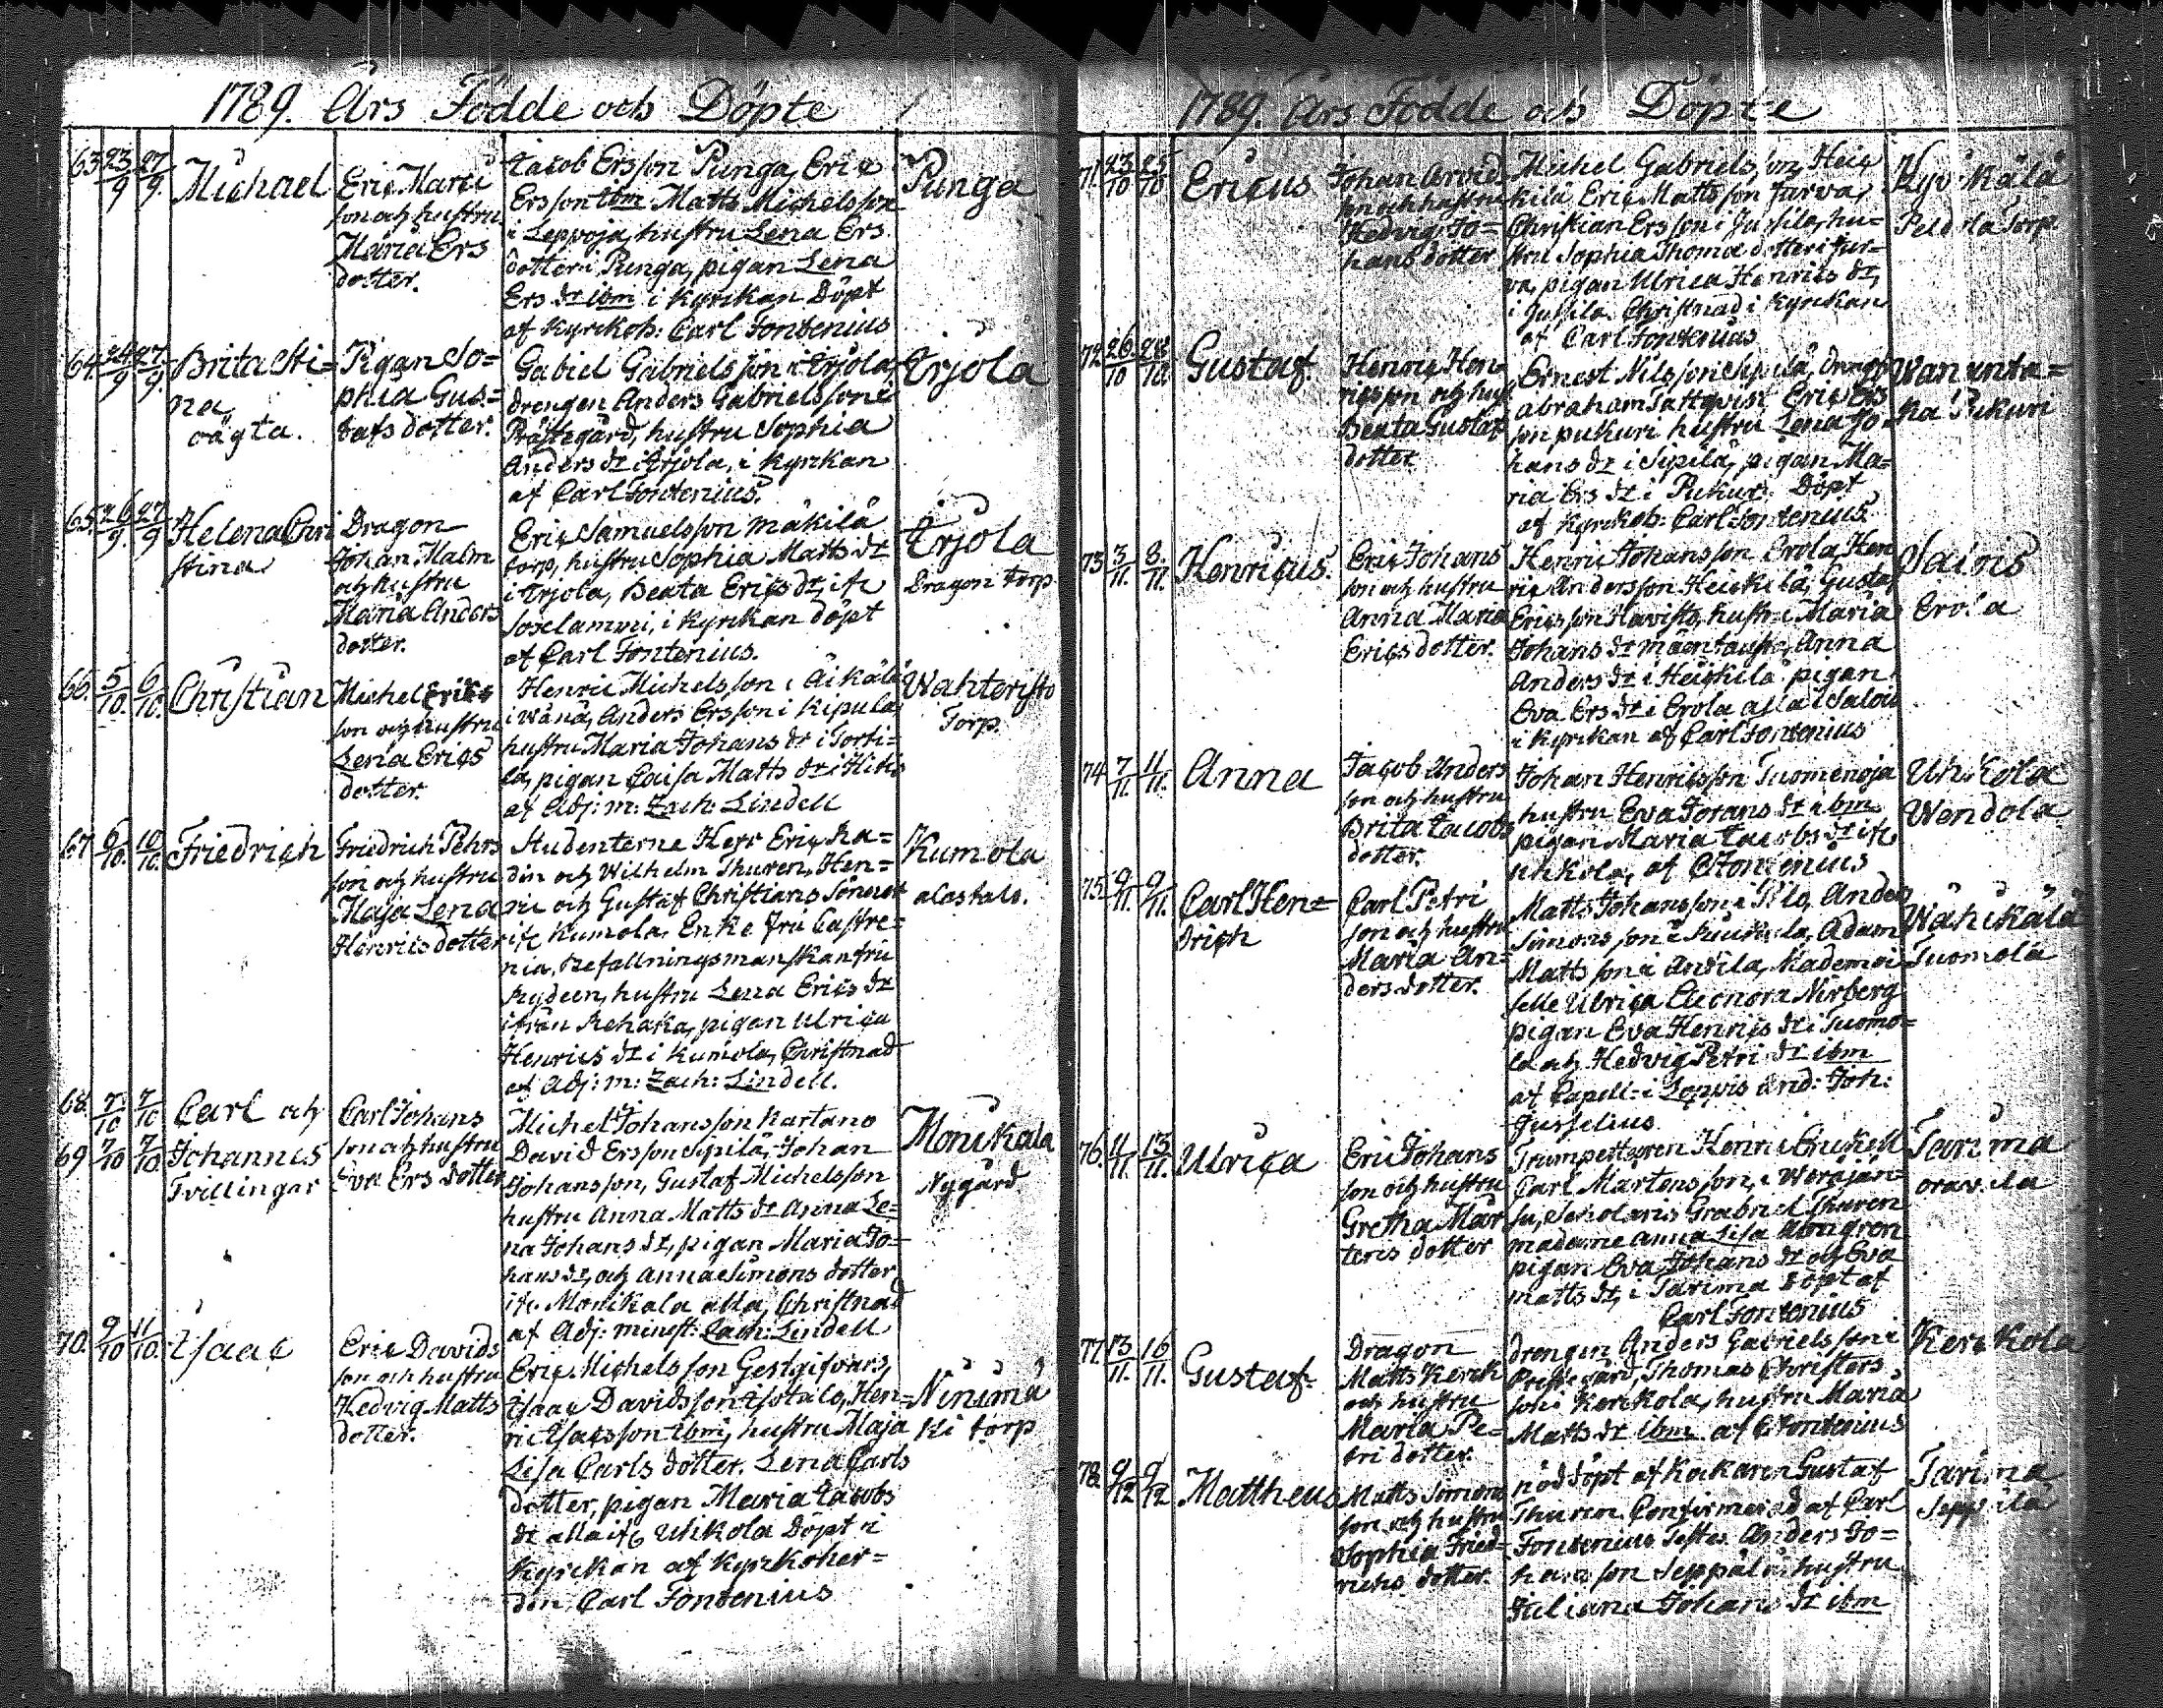 1789. Års Födde och Döpte
63 23/9 27/9 Michael
Eric Matts
son och hustru
Maria Ers
dotter.
Jacob Ersson Punga, Eric
Ersson ibm Matts Michelsson
i Leppoja, hustru Lena Ers
dotter i Punga, pigan Lena
Ers dr ibm i Kyrckan Döpt
af Kyrckoh: Carl Fontenius
Punga
64. 24/9 27/9. Brita Sti=
na,
oägta.
Pigan So=
phia Gus=
tafs dotter.
Gabiel Gabrielsson i Erjola,
drengen Anders Gabrielsson i
Prästegård, hustru Sophia
Anders dr i Erjola, i Kyrckan
af Carl Fontenius.
Erjola
65. 26/9. 27/9 Helena Chri
stina
Dragon
Johan Malm
och hustru
Maria Anders
dotter.
Eric Samuelsson Mäkilä
torp, hustru Sophia Matts dr
i Erjola, Beata Erics dr, ifr
i Kyrckan döpt
af Carl Fontenius.
Erjola
Dragon torp
66. 5/10. 6/10. Christian
Michel Erics
son och hustru
Lena Erics
dotter.
Henric Michelsson i Äikälä
i Wånå, Anders Ersson i Kipula,
hustru Maria Johans dr i Torti=
la, pigan Caisa Matts dr i Hitis
af Adj: m: Zach: Lindell
Wahteristo
Torp.
67 6/10. 10/10. Friedrich
Friedrich Pehrs
son och hustru
Maja Lena
Henrics dotter
Studenterne Herr Eric Ha=
din och Wilhelm Thuren, Hen=
ric och Gustaf Christians Söner
ifr Kumola, Enke fru Castre=
nia, Befallningsmanskan fru
Rydeen, hustru Lena Erics dr
ifrån Rehaka, pigan Ulrica
Henrics dr i Kumola, Christnad
af Adj: m: Zach: Lindell.
Kumola
alastalo.
68. 7/10 7/10 Carl och
69 7/10 7/10 Johannes
Tvillingar
Carl Johans
son och hustru
Eva Ers dotter
Michel Johansson Kartano
David Ersson Sipilä, Johan
Johansson, Gustaf Michelsson
hustru Anna Matts dr Anna Le=
na Johans dr, pigan Maria Jo=
hans dr, och Anna Simons dotter
ifr. Monikala alla, Christnad
af Adj: minist: Zach: Lindell
Monikala
Nygård
70. 9/10 11/10. Isaac
Eric Davids
son och hustru
Hedvig Matts
dotter.
Eric Michelsson Gestgifvars,
Isaac Davidsson Isotalo, Hen=
ric Isacsson ibm, hustru Maja
Lisa Carls dotter. Lena Carls
dotter, pigan Maria Jacobs
dr alla ifr Uhkola Döpt i
Kyrckan af Kyrckoher=
den, Carl Fontenius
Ninimä
ki torp
1789. Års Födde och Döpte
71. 23/10 25/10 Ericus
Johan Arvids
son och hustru
Hedvig Jo=
hans dotter
Michel Gabrielsson, Heic
kilä Eric Mattsson Jarva,
Christian Ersson i Jussila, hu=
stru Sophia Thoma dotter i Jar=
va, pigan Ulrica Henrics dr,
i Jussila. Christnad i Kyrckan
af Carl Fontenius
Torp
72 26/10 28/10 Gustaf
Henric Hen
ricsson och hust
Beata Gustaf
dotter
Ernest Nilsson Sipilä, Dreng
abraham Tattqvist, Eric Ers
son pukuri hustru Lena Jo
hans dr i Sipilä, pigan Ma=
ria Ers dr i Pukuri Döpt
af Kyrckoh: Carl Fontenius.
Wananta=
ka Pukuri
73 3/11. 8/11. Henricus.
Eric Johans
son och hustru
Anna Maria
Erics dotter.
Henric Johansson Erola, Hen
ric Andersson Heickilä, Gustaf
Ericsson Havisto, hustru Maria
Johans dr Mäentausta, Anna
Anders dr i Heickilä pigan
Eva Ers dr i Erola alla i Salois
i Kyrckan af Carl Fontenius
Salois
Erola
74 7/11. 11/11. Anna
Jacob Anders
son och hustru
Brita Jacobs
dotter.
Johan Henricsson Tuomenoja
hustru Eva Johans dr ibm
pigan Maria Jacobs dr ifr
Uhkola, af C: Fontenius
Uhkola
Wendola
75. 9/11. 9/11. Carl Hen=
drich
Carl Petri
son och hustru
Maria An=
ders dotter.
Matts Johansson i Pilo, Anders
Simons son i Adam
Matts son i Anttila, Mademoi
selle Ulrica Eleonora Nirberg
pigan Eva Henrics dr i Tuomo=
la och Hedvig Petri dr ibm
af Capell: i Loppis And: Joh:
Gusselius
Wähikälä
Tuomola
76. 11/11. 13/11. Ulrica
Eric Johans
son och hustru
Gretha Mår
tens dotter
Trumpetaren Henric Enckell
Carl Mårtensson, i Weräjän
su, Scholaris Grabriel Thuren
madame Anna Lisa
pigan Eva Johans dr och Eva
matts dr, i Tarima Döpt af
Carl Fontenius
Tarima
oravala
77. 13/11. 16/11. Gustaf.
Dragon
Matts Kerck
och hustru
Maria Pe=
tri dotter.
drengen Anders Gabrielsson i
Prestegård, Thomas Christers
son i Kerckola, hustru Maria
Matts dr ibm af C Fontenius
Kerckola
78. 9/12 9/12 Mattheus
Matts Simons
son och hustru
Sophia Fried=
richs dotter.
nöddöpt af Kockaren Gustaf
Thuren. Confirmerad af Carl
Fontenius Testes Anders Jo=
hansson Seppälä, hustru
Juliana Johans dr ibm
Tarima
Seppälä